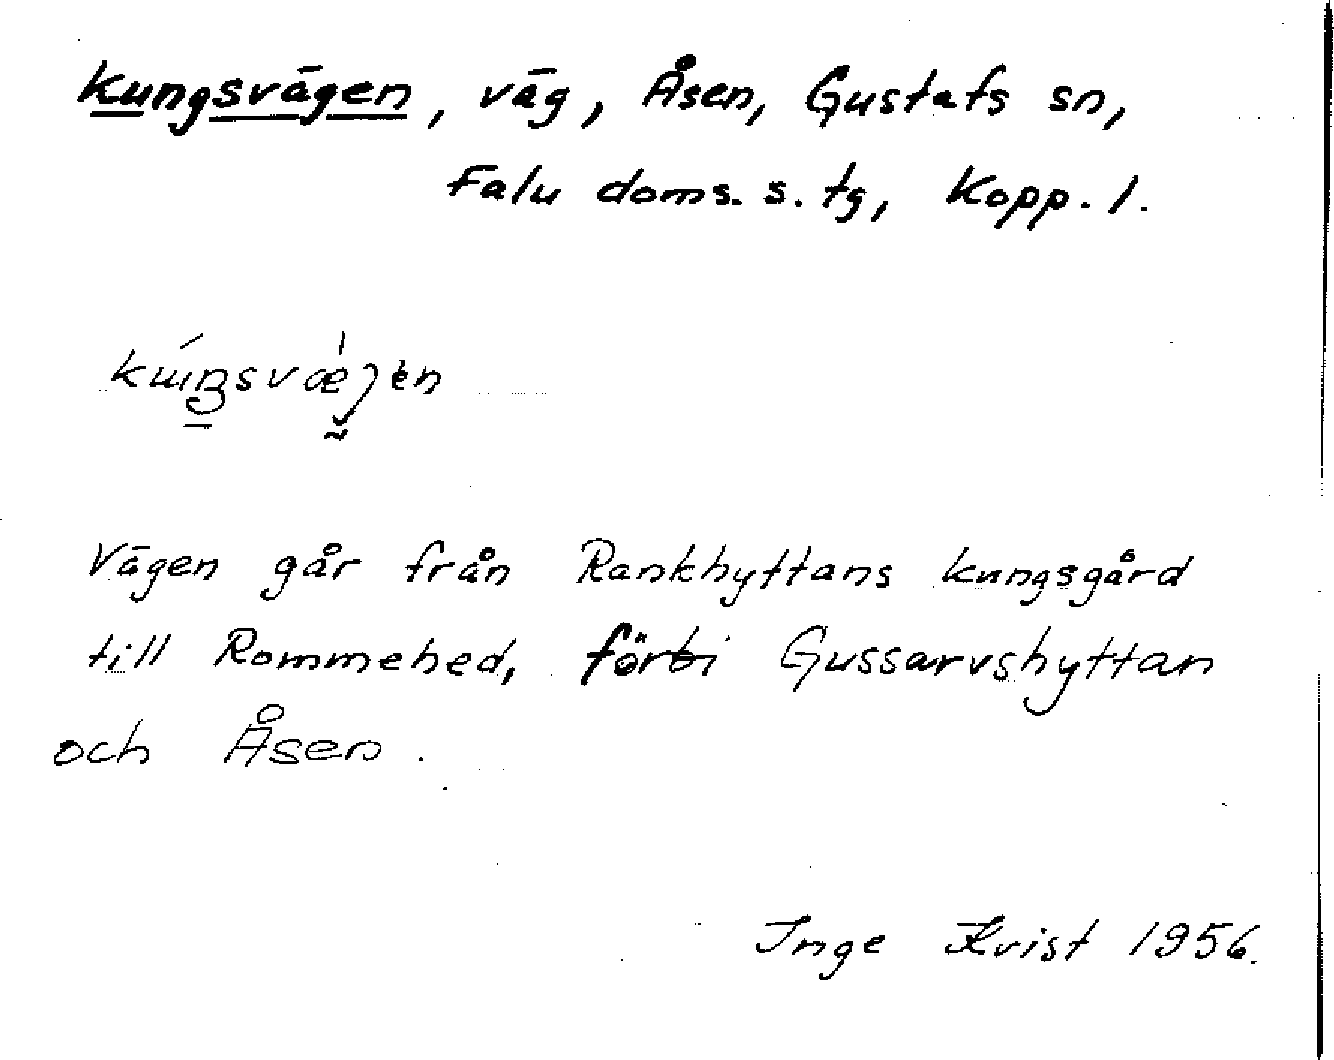 Kungsvägen, väg, Åsen, Gustafs sn,
Falu doms. s. tg, Kopp. l.
Vägen går från Rankhyttans kungsgård
till Rommehed, förbi Gussarvshyttan
och Åsen.
Inge Kvist 1956.